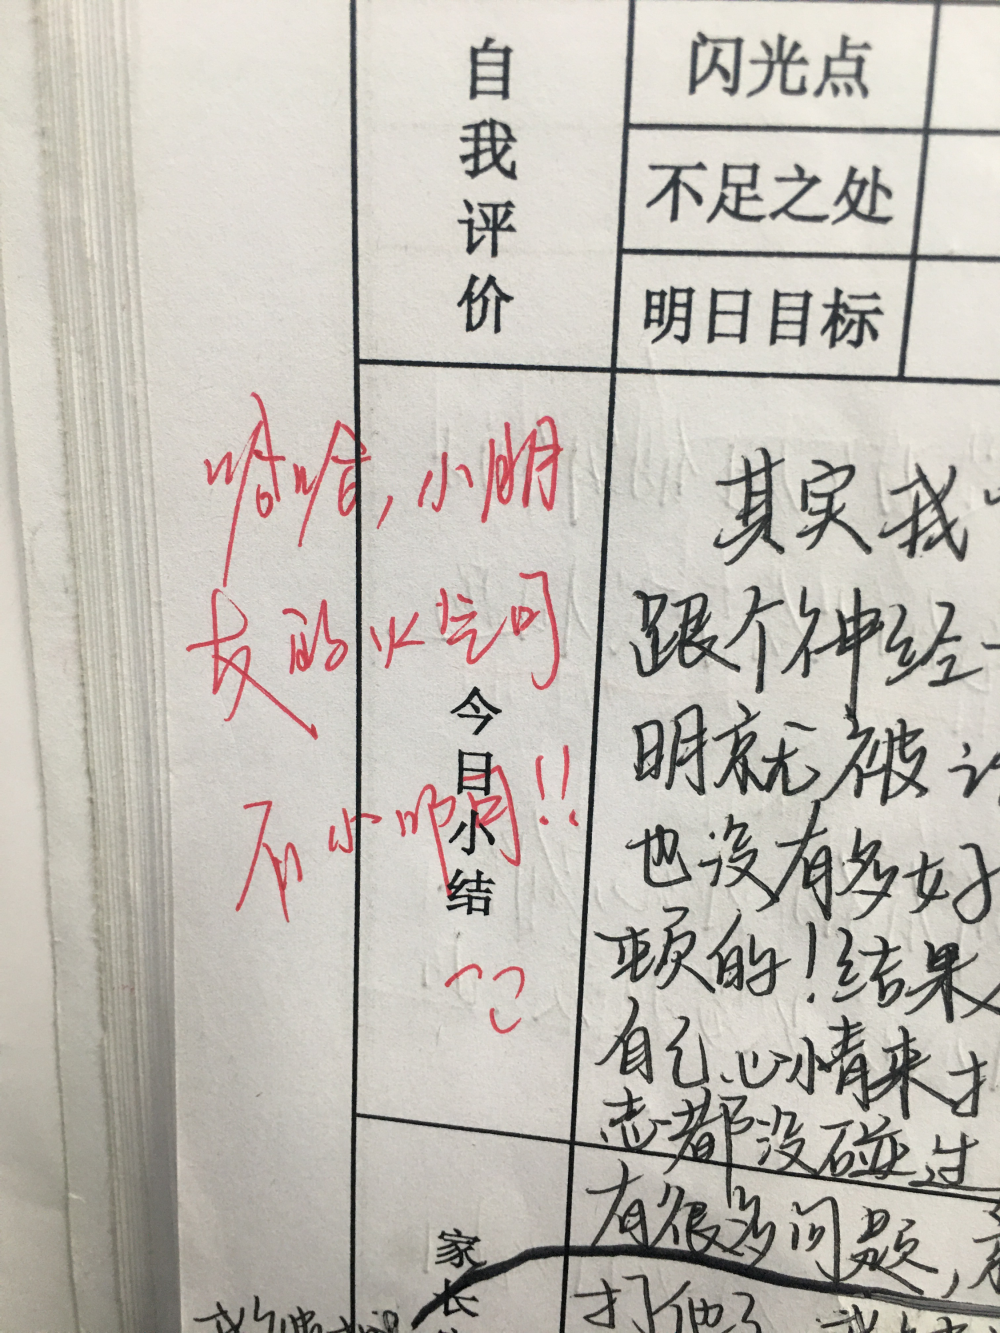 自我评价
闪光点
不足之处
明日目标
哈哈,小朋
友的火气可
不小啊!!
今日小结
其实我
跟个神经
明就无被
也没有多好
顿的!结果
自己心情来
志都没碰过
有很多问题,
家长
打他了